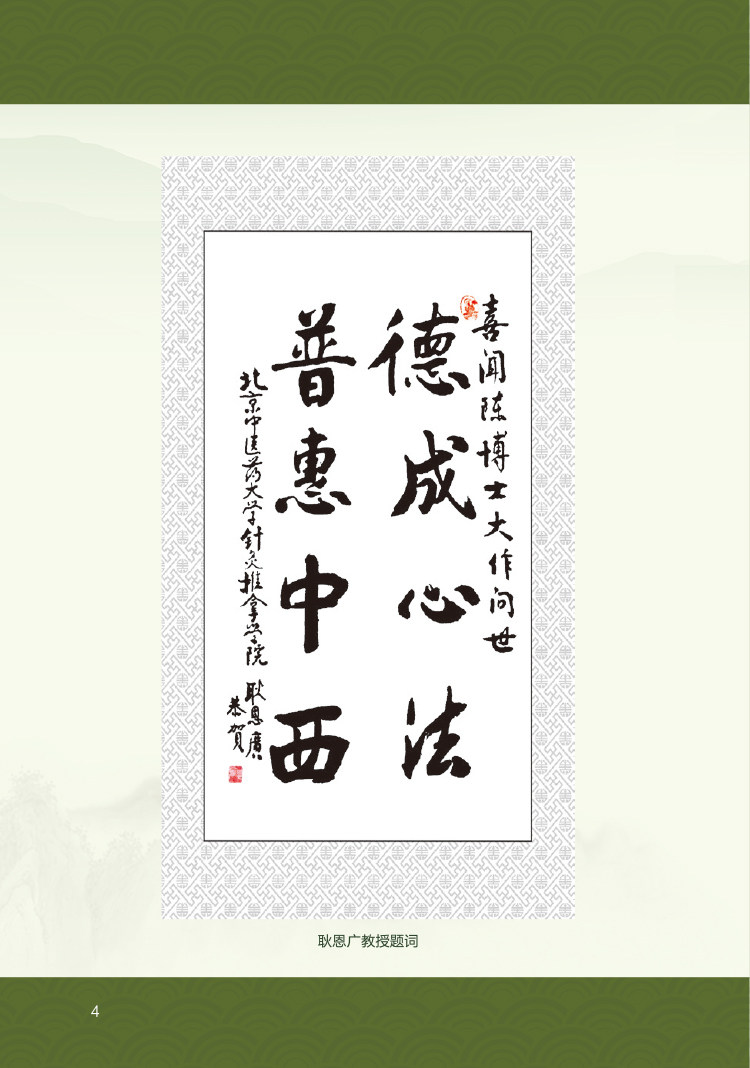 喜闻陈博士大作问世
德成心法
普惠中西
北京中医药大学针灸推拿学院
耿恩廣
恭贺
耿恩广教授题词
4